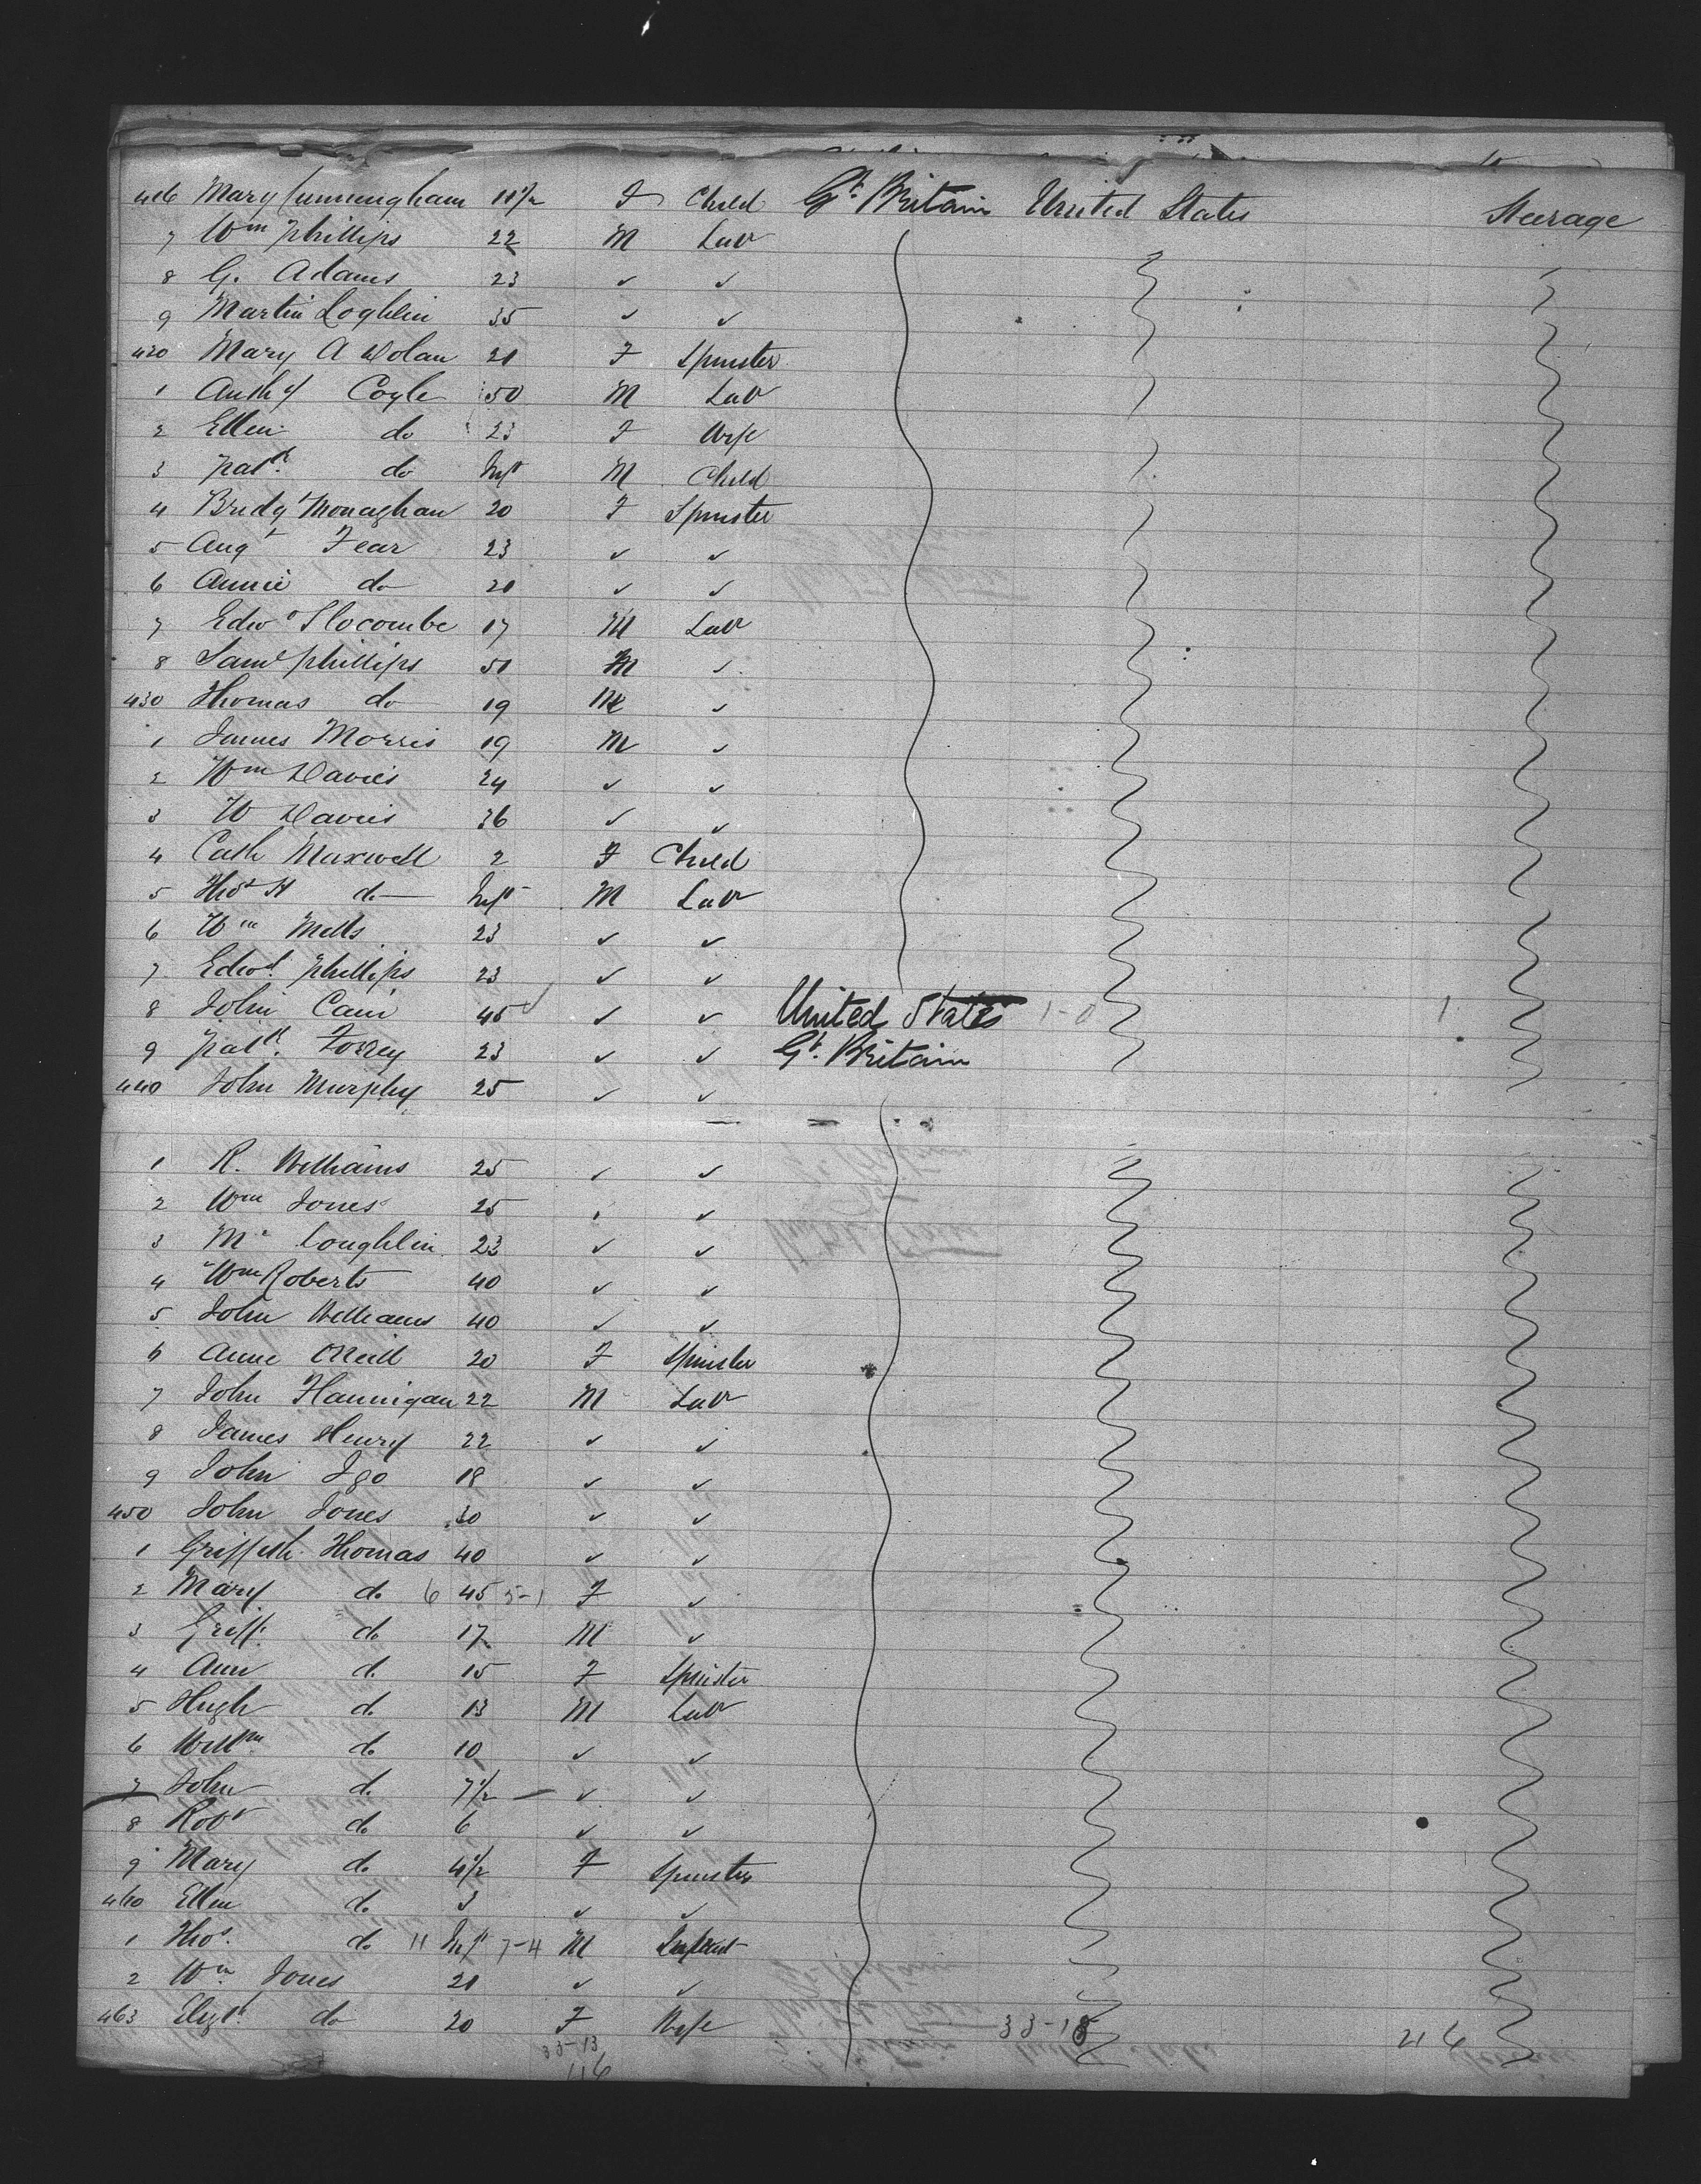 416 Mary Cunningham 11 1/2 F Child Gt. Britain United States Steerage
7 Wm Phillips 22 M Lab
8 G. Adams 23 ✓ ✓
9 Martin Loghlin 35 ✓ ✓
420 Mary A Dolan 21 F Spinster
1 Anthy Coyle 50 M Lab
2 Ellen do 23 F Wife
3 Patk. do Inft M Child
4 Bridgt Monaghan 20 F Spinster
5 Augt Fear 23 ✓ ✓
6 Annie do 20 ✓ ✓
7 Edwd Slocombe 17 M Lab
8 Saml Phillips 51 M ✓
430 Thomas do 19 M ✓
1 James Morris 19 M ✓
2 Wm Davies 24 ✓ ✓
3 W Davies 36 ✓ ✓
4 Cath Maxwell 2 F Child
5 Thos H do Inft M Lab
6 Wm Mills 23 ✓ ✓
7 Edwd. Phillips 23 ✓ ✓
8 John Cain 45 ✓ ✓ United States 1-0 1
9 Patk. Forrey 23 ✓ ✓ Gt. Britain
440 John Murphy 25 ✓ ✓
1 R. Williams 25 ✓ ✓
2 Wm Jones 25 ✓ ✓
3 Mc Loughlin 23 ✓ ✓
4 Wm Roberts 40 ✓ ✓
5 John Williams 40 ✓ ✓
6 Anne ONeill 20 F Spinster
7 John Hannigan 22 M Lab
8 James Henry 22 ✓ ✓
9 John Igo 18 ✓ ✓
450 John Jones 30 ✓ ✓
1 Griffith Thomas 40 ✓ ✓
2 Mary do 6 45 5-1 F ✓
3 Griff. do 17 M ✓
4 Ann do 15 F Spinster
5 Hugh do 13 M Lab
6 Willm do 10 ✓ ✓
7 John do 7 1/2 ✓ ✓
8 Robt do 6 ✓ ✓
9 Mary do 4 1/2 F Spinster
460 Ellen do 3 ✓ ✓
1 Thos. do 11 Inft 7-4 M Infant
2 Wm Jones 21 ✓ ✓
463 Elizth. do 20 F Wife 33-13
33-13